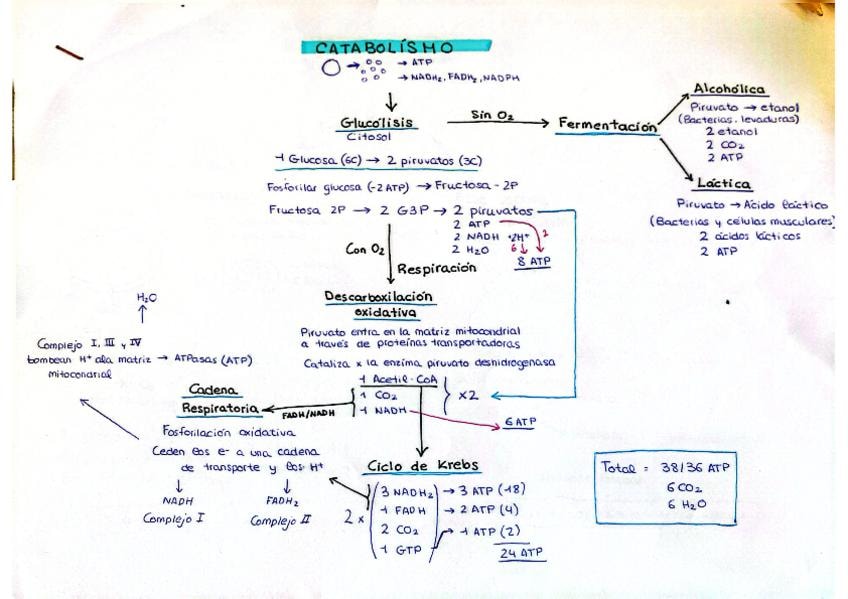 CATABOLÍSMO
→ ATP
→ NADH₂, FADH₂, NADPH
Glucólisis
Citosol
Sin O₂
Fermentación
Alcohólica
Piruvato → etanol
(Bacterias. levaduras)
2 etanol
2 CO₂
2 ATP
Láctica
Piruvato → Ácido láctico
(Bacterias y células musculares)
2 ácidos lácticos
2 ATP
1 Glucosa (6C) → 2 piruvatos (3C)
Fosforilar glucosa (-2 ATP) → Fructosa - 2P
Fructosa 2P → 2 G3P → 2 piruvatos
2 ATP
2 NADH +2H⁺
2 H₂O
2
6
8 ATP
Con O₂
Respiración
Descarboxilación
oxidativa
Piruvato entra en la matriz mitocondrial
a través de proteínas transportadoras
Cataliza x la enzima piruvato deshidrogenasa
1 Acetil-CoA
1 CO₂
1 NADH
x2
6 ATP
FADH/NADH
Cadena
Respiratoria
Fosforilación oxidativa
Ceden los e- a una cadena
de transporte y los H⁺
NADH
Complejo I
FADH₂
Complejo II
H₂O
Complejo I, III y IV
bombean H⁺ a la matriz → ATPasas (ATP)
mitocondrial
Ciclo de Krebs
2 x
3 NADH₂ → 3 ATP (18)
1 FADH → 2 ATP (4)
2 CO₂
1 GTP → 1 ATP (2)
24 ATP
Total = 38/36 ATP
6 CO₂
6 H₂O